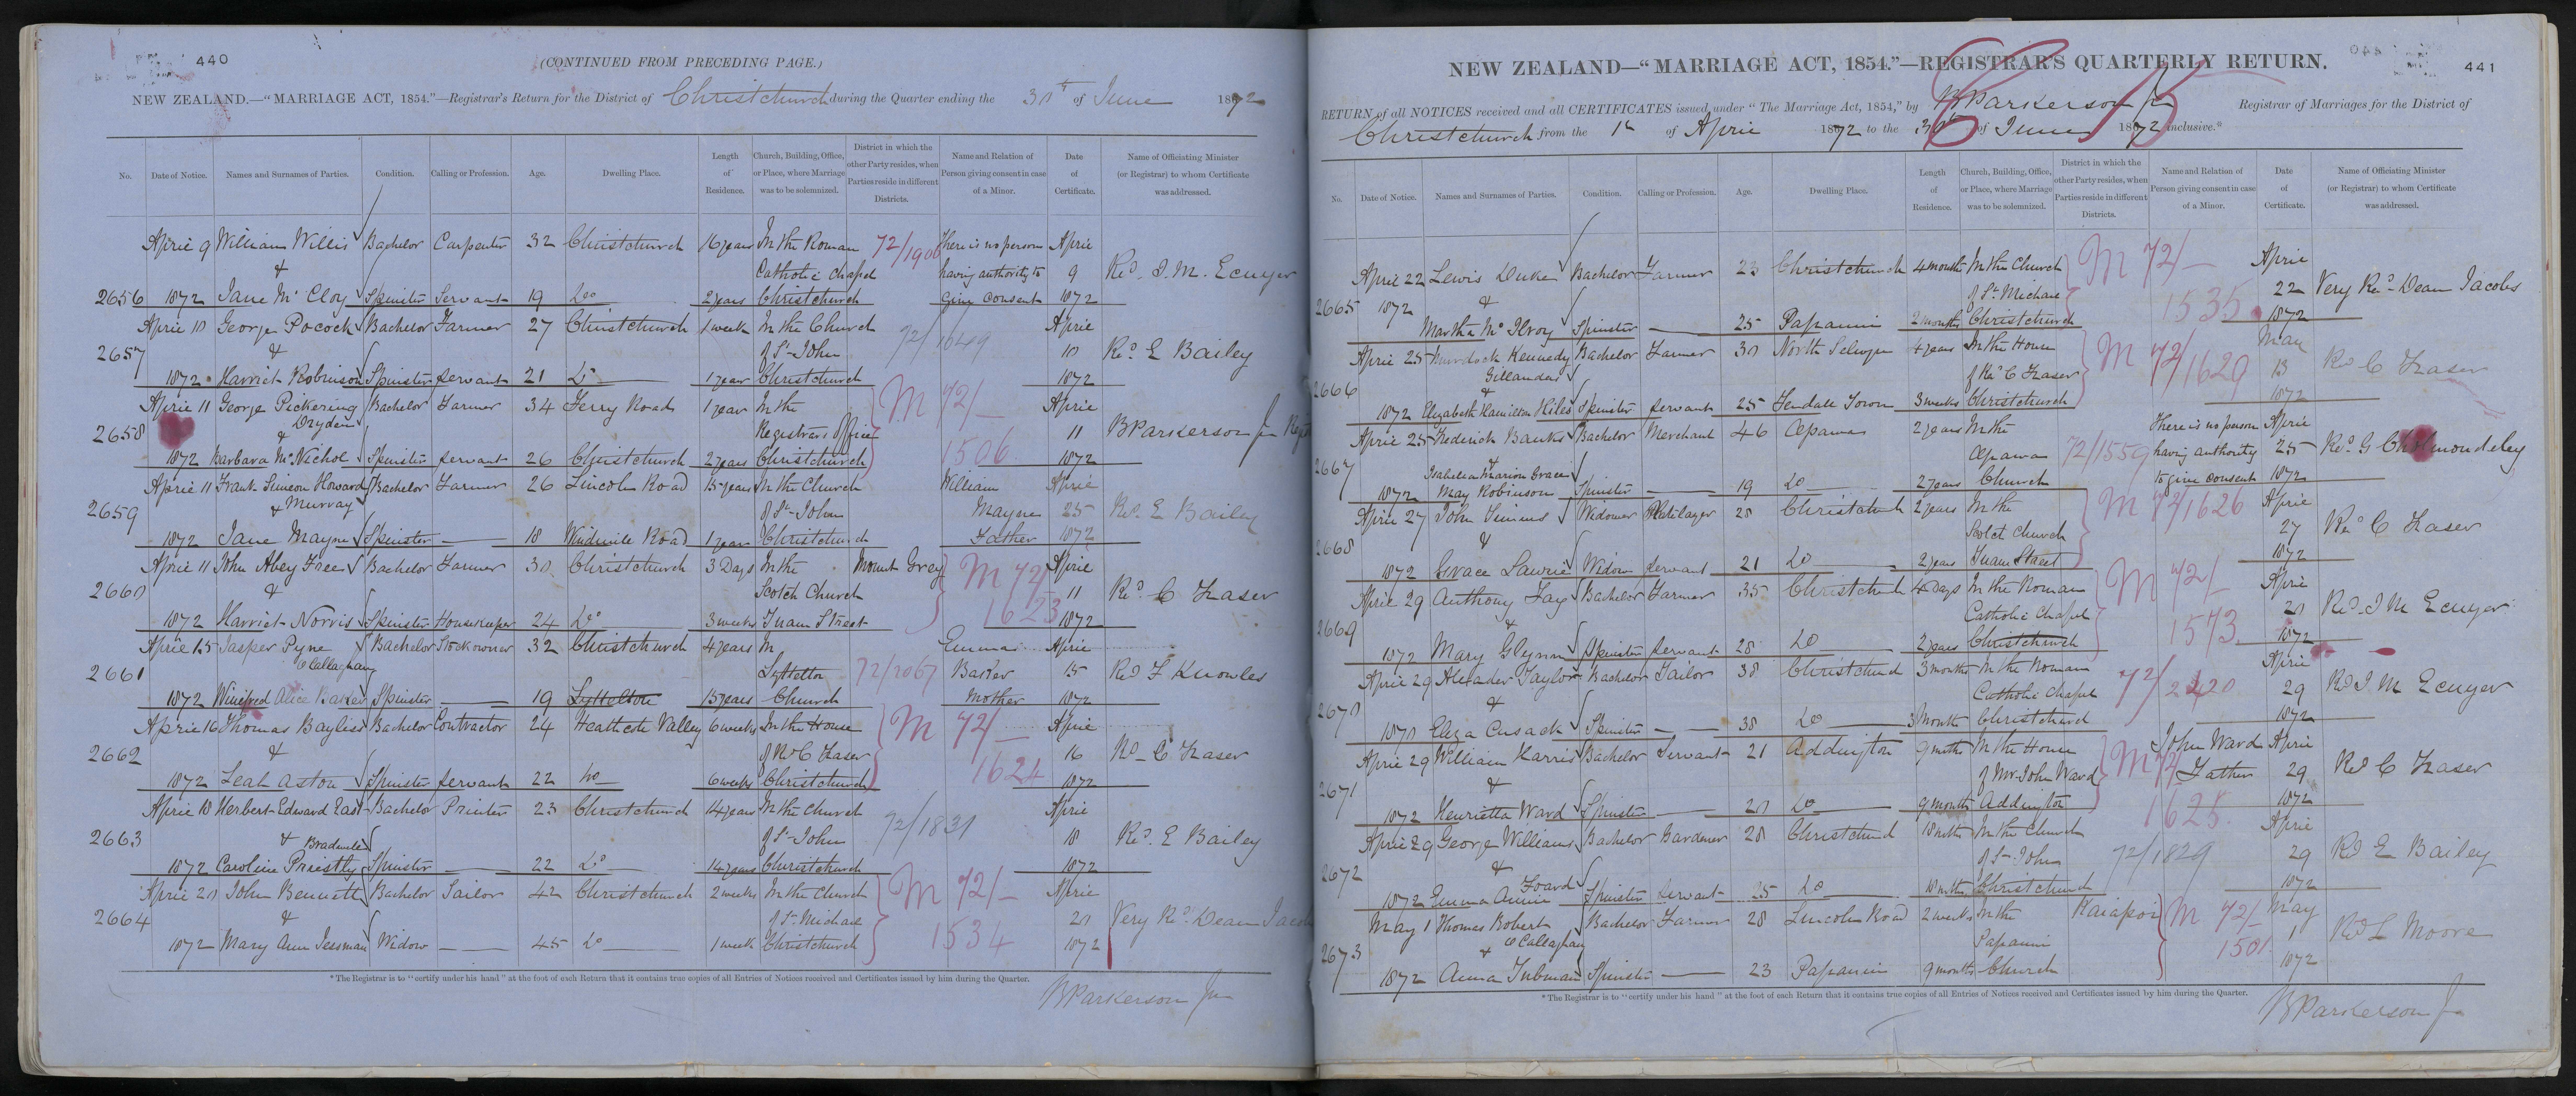 440
(CONTINUED FROM PRECEDING PAGE.)
NEW ZEALAND.—"MARRIAGE ACT, 1854."—Registrar's Return for the District of Christchurch during the Quarter ending the 30th of June 1872
No. Date of Notice. Names and Surnames of Parties. Condition. Calling or Profession. Age. Dwelling Place. Length of Residence. Church, Building, Office, or Place, where Marriage was to be solemnized. District in which the other Party resides, when Parties reside in different Districts. Name and Relation of Person giving consent in case of a Minor. Date of Certificate. Name of Officiating Minister (or Registrar) to whom Certificate was addressed.
April 9 William Willis Bachelor Carpenter 32 Christchurch 16 years In the Roman 72/1900 There is no person April
& Catholic Chapel having authority to 9 Revd. I. M. Ecuyer
2656 1872 Jane McCloy Spinster Servant 19 Do 2 years Christchurch give consent 1872
April 10 George Pocock Bachelor Farmer 27 Christchurch 1 week In the Church 72/1649 April
2657 & of St John 10 Revd E Bailey
1872 Harriet Robinson Spinster servant 21 Do 1 year Christchurch 1872
April 11 George Pickering Bachelor Farmer 34 Ferry Road 1 year In the M 72/ April
Dryden
2658 & Registrar's Office 11 B Parkerson Jr
1872 Barbara McNichol Spinster servant 26 Christchurch 2 years Christchurch 1506 1872
April 11 Frank Simeon Howard Bachelor Farmer 26 Lincoln Road 15 years In the Church William April
2659 & Murray of St John Mayne 25 Revd. E Bailey
1872 Jane Mayne Spinster 18 Windmill Road 1 year Christchurch Father 1872
April 11 John Abey Free Bachelor Farmer 30 Christchurch 3 Days In the Mount Grey M 72/ April
2660 & Scotch Church 11 Revd C Fraser
1872 Harriet Norris Spinster Housekeeper 24 Do 3 weeks Tuam Street 1623 1872
April 15 Jasper Pyne Bachelor Stockowner 32 Christchurch 4 years In Emma April
O'Callaghan
2661 Lyttelton 72/2067 Barker 15 Revd F Knowles
1872 Winifred Alice Barker Spinster 19 Lyttelton 15 years Church Mother 1872
April 16 Thomas Bayliss Bachelor Contractor 24 Heathcote Valley 6 weeks In the House M 72/ April
2662 & of Revd C Fraser 16 Revd C Fraser
1872 Leah Aston Spinster servant 22 Do 6 weeks Christchurch 1624 1872
April 18 Herbert Edward East Bachelor Printer 23 Christchurch 14 years In the Church 72/1831 April
2663 & Bradwell of St John 18 Revd. E Bailey
1872 Caroline Priestly Spinster 22 Do 14 years Christchurch 1872
April 20 John Bennett Bachelor Sailor 42 Christchurch 2 weeks In the Church M 72/ April
2664 & of St Michael 20 Very Revd Dean Jacobs
1872 Mary Ann Jessman Widow 45 Do 1 week Christchurch 1534 1872
* The Registrar is to "certify under his hand" at the foot of each Return that it contains true copies of all Entries of Notices received and Certificates issued by him during the Quarter.
B Parkerson Jr
441
NEW ZEALAND—"MARRIAGE ACT, 1854."—REGISTRAR'S QUARTERLY RETURN.
RETURN of all NOTICES received and all CERTIFICATES issued under "The Marriage Act, 1854," by B Parkerson Jr Registrar of Marriages for the District of
Christchurch from the 1st of April 1872 to the 30th of June 1872 inclusive.*
No. Date of Notice. Names and Surnames of Parties. Condition. Calling or Profession. Age. Dwelling Place. Length of Residence. Church, Building, Office, or Place, where Marriage was to be solemnized. District in which the other Party resides, when Parties reside in different Districts. Name and Relation of Person giving consent in case of a Minor. Date of Certificate. Name of Officiating Minister (or Registrar) to whom Certificate was addressed.
April 22 Lewis Duke Bachelor Farmer 23 Christchurch 4 months In the Church M 72/ April
2665 1872 & of St Michael 1535 22 Very Revd Dean Jacobs
Martha McIlroy Spinster 25 Papanui 2 months Christchurch 1872
April 25 Murdoch Kennedy Bachelor Farmer 30 North Selwyn 4 years In the House M 72/1629 May
Gillanders
2666 & of Revd C Fraser 13 Revd C Fraser
1872 Elizabeth Hamilton Hiles Spinster servant 25 Tendall Town 3 weeks Christchurch 1872
April 25 Frederick Banks Bachelor Merchant 46 Opawa 2 years In the There is no person April
2667 & Opawa 72/1559 having authority 25 Revd. G Cholmondeley
Isabella Marion Grace
1872 May Robinson Spinster 19 Do 2 years Church to give consent 1872
April 27 John Simms Widower Platelayer 28 Christchurch 2 years In the M 72/1626 April
2668 & Scotch Church 27 Revd C Fraser
1872 Grace Lawrie Widow servant 21 Do 2 years Tuam Street 1872
April 29 Anthony Fay Bachelor Farmer 35 Christchurch 4 Days In the Roman M 72/ April
2669 & Catholic Chapel 1573 Revd. I M Ecuyer
1872 Mary Glynn Spinster servant 28 Do 2 years Christchurch 1872
April 29 Alexander Taylor Bachelor Tailor 38 Christchurch 3 months In the Roman 72/2420 April
2670 & Catholic Chapel 29 Revd I. M Ecuyer
1870 Eliza Cusack Spinster 38 Do 3 Month Christchurch 1872
April 29 William Harris Bachelor Servant 21 Addington 9 mnths In the House M 72/ John Ward April
2671 & of Mr John Ward Father 29 Revd C Fraser
1872 Henrietta Ward Spinster 20 Do 9 months Addington 1628 1872
April 29 George Williams Bachelor Gardener 28 Christchurch 18 mnths In the Church April
2672 & of St John 72/1829 29 Revd E Bailey
1872 Emma Annie Foard Spinster servant 25 Do 18 mnths Christchurch 1872
May 1 Thomas Robert Bachelor Farmer 28 Lincoln Road 2 weeks In the Kaiapoi M 72/ May
2673 & O'Callaghan Papanui 1501 1 Revd L Moore
1872 Anna Tubman Spinster 23 Papanui 9 months Church 1872
* The Registrar is to "certify under his hand" at the foot of each Return that it contains true copies of all Entries of Notices received and Certificates issued by him during the Quarter.
B Parkerson Jr